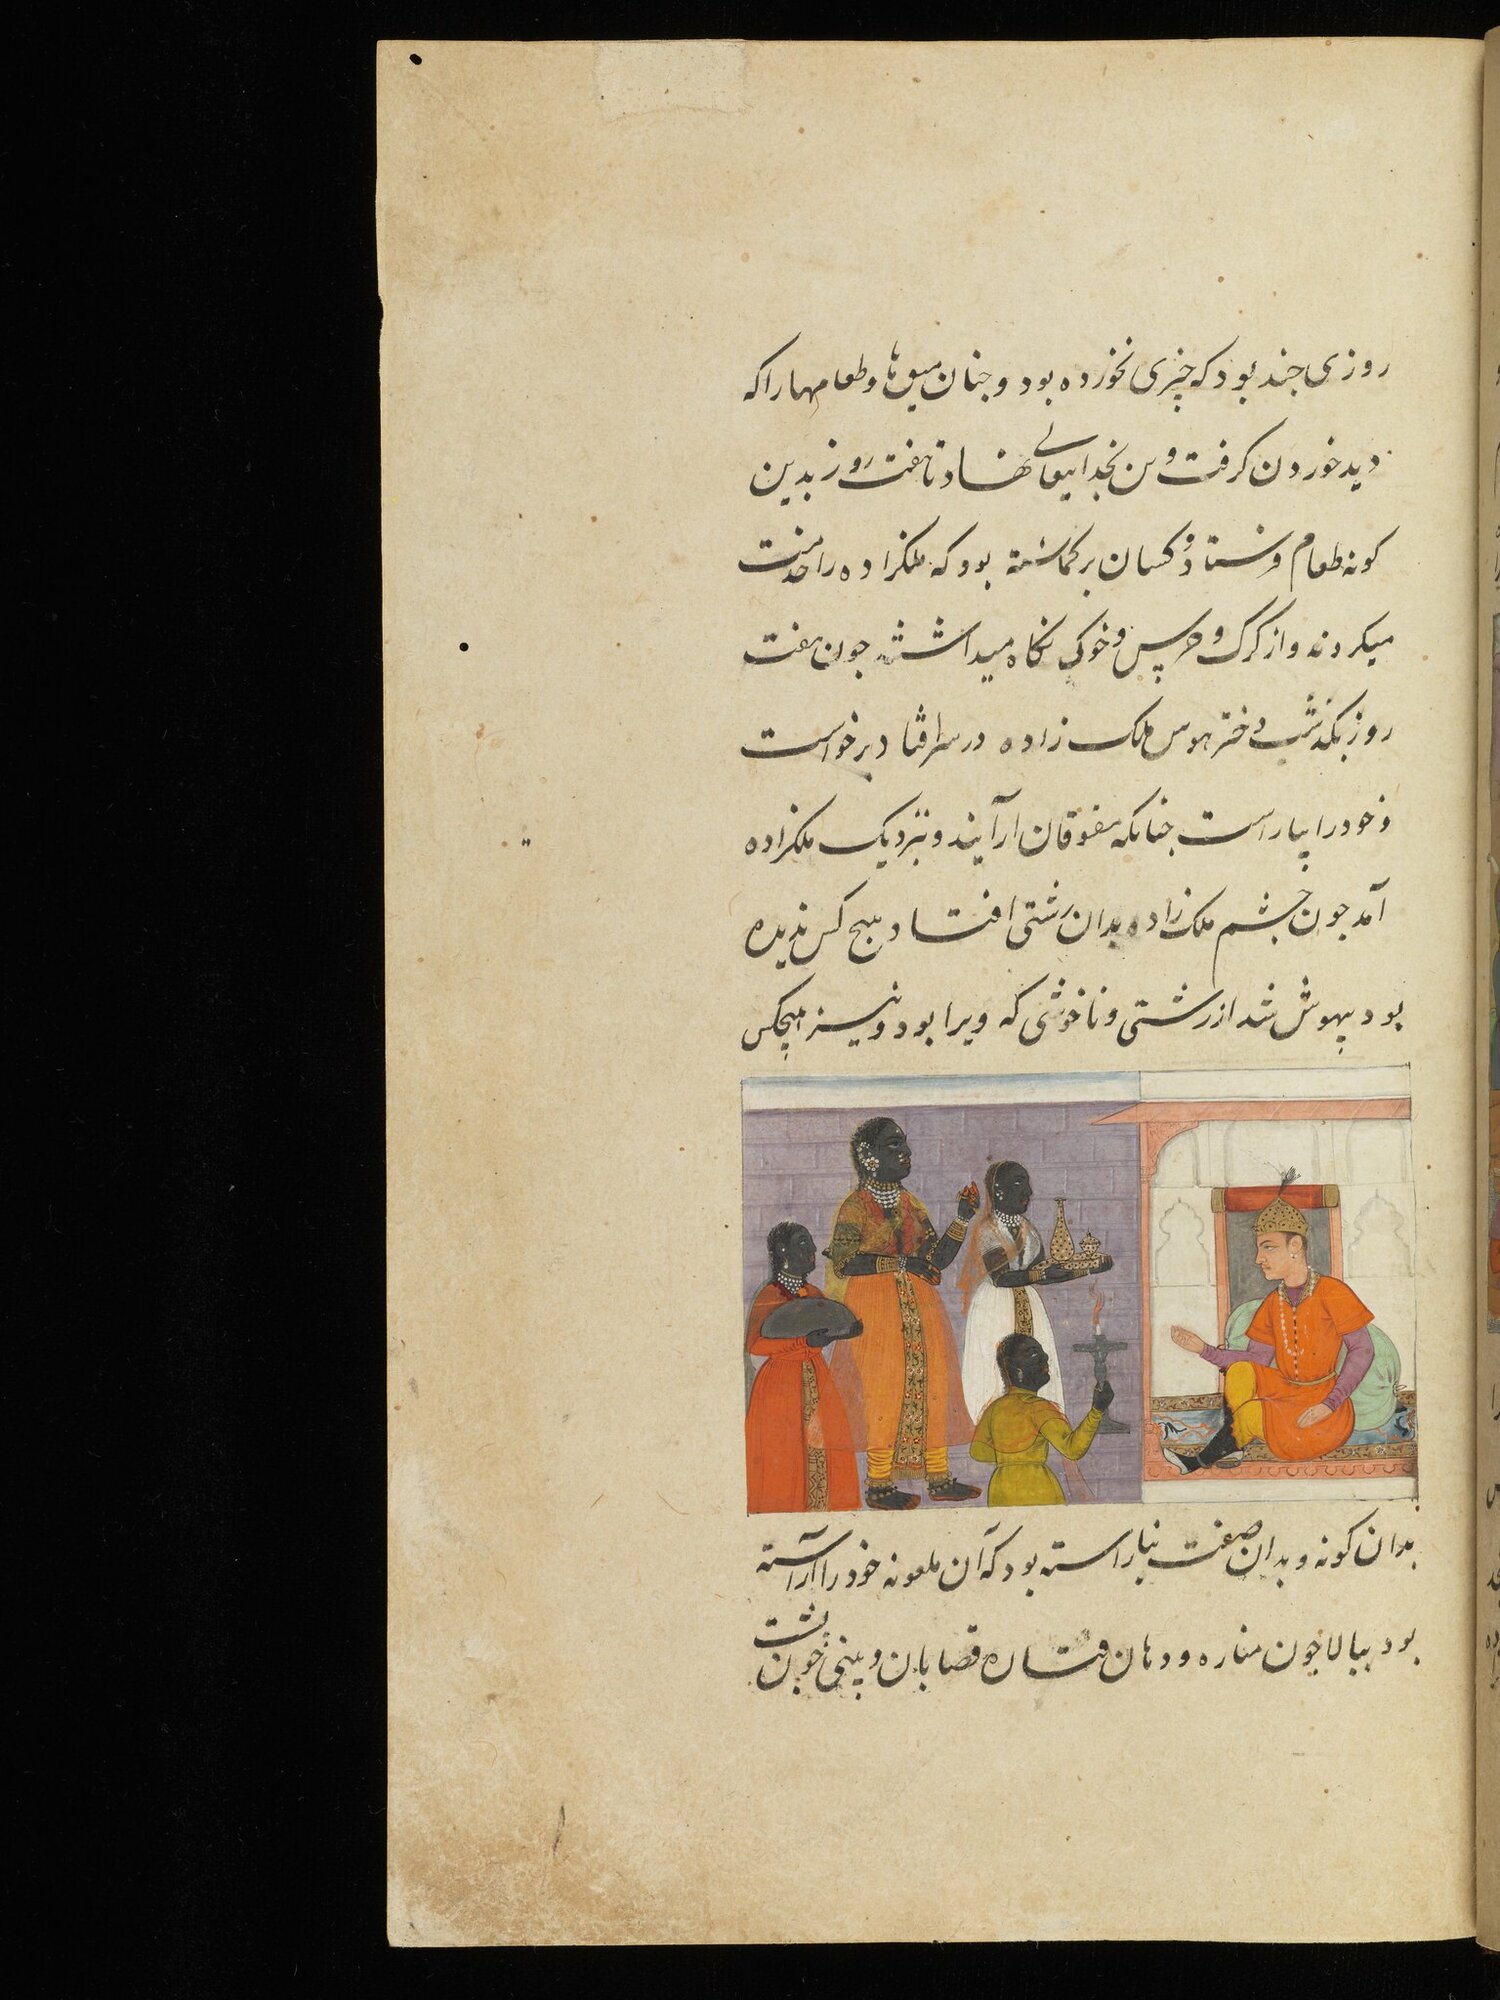 روزی جند بود که چیزی نخورده بود و جنان میوها و طعامها را که
دید خوردن گرفت و تن بخدایتعالی نهاد تا هفت روز بدین
کونه طعام فرستاد و کسان برکماشته بود که ملکزاده را خدمت
میکردند و از کرک و خرس و خوک نکاه میداشتند جون هفت
روز بکذشت دختر هوس ملک زاده در سر افتاد برخواست
و خود را بیاراست جنانکه معشوقان آرایند و بنزدیک ملکزاده
آمد جون چشم ملک زاده بدان زشتی افتاد هیج کس ندیده
بود بیهوش شد از زشتی و ناخوشی که ویرا بود و نیز هیچکس
بدان کونه و بدان صفت نیاراسته بود که آن ملعونه خود را آراسته
بود ببالا جون مناره و دهان قصابان و بینی جون خشت